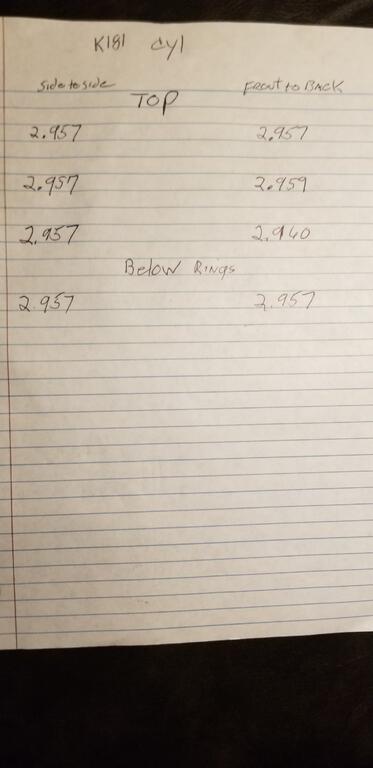 K181 Cyl
Side to side Front to Back
TOP
2.957 2.957
2.957 2.959
2.957 2.940
Below Rings
2.957 2.957